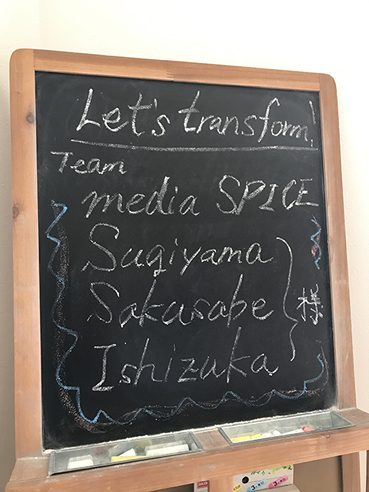 Let's transform!
Team
media SPICE
Sugiyama
Sakasabe 様
Ishizuka